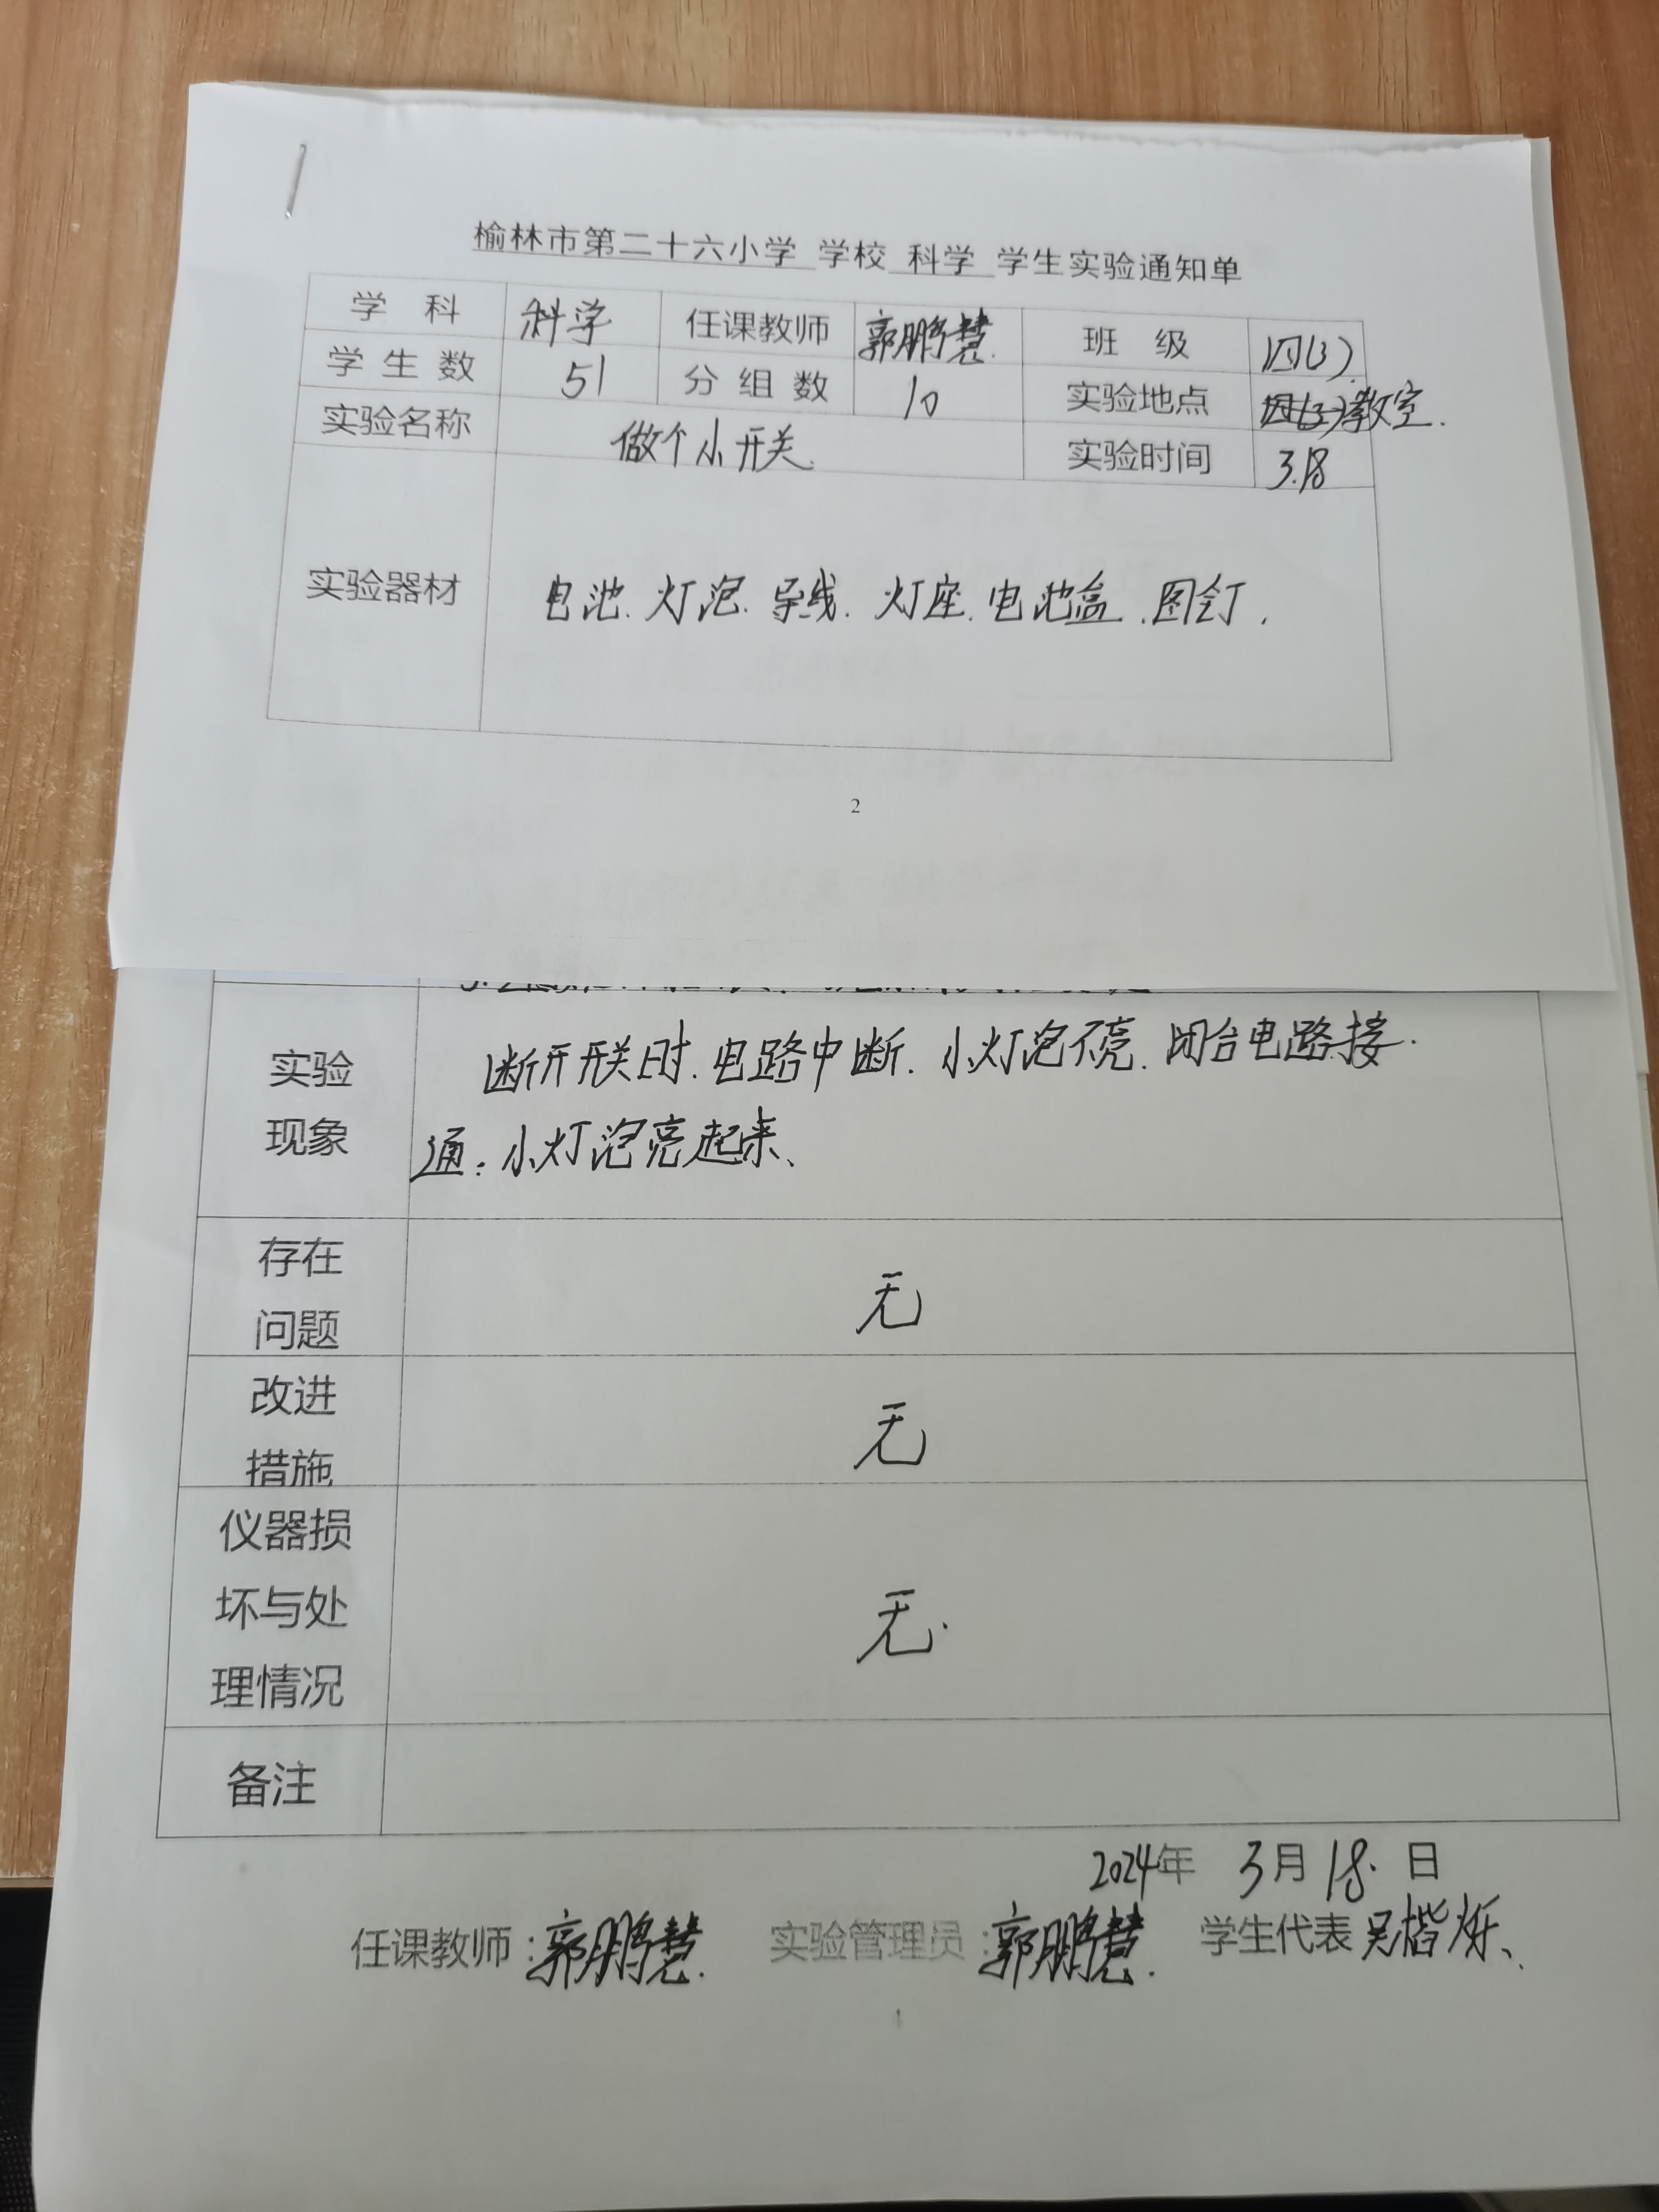 榆林市第二十六小学 学校 科学 学生实验通知单
学 科 科学 任课教师 郭鹏慧 班 级 四(3)
学 生 数 51 分 组 数 10 实验地点 四(3)教室.
实验名称 做个小开关 实验时间 3.18
实验器材 电池、灯泡、导线、灯座、电池盒、图钉.
2
实验
现象
断开开关时.电路中断.小灯泡不亮.闭合电路接
通;小灯泡亮起来、
存在
问题
无
改进
措施
无
仪器损
坏与处
理情况
无.
备注
2024年 3月18.日
任课教师:郭鹏慧. 实验管理员:郭鹏慧. 学生代表 吴楷烁、
4